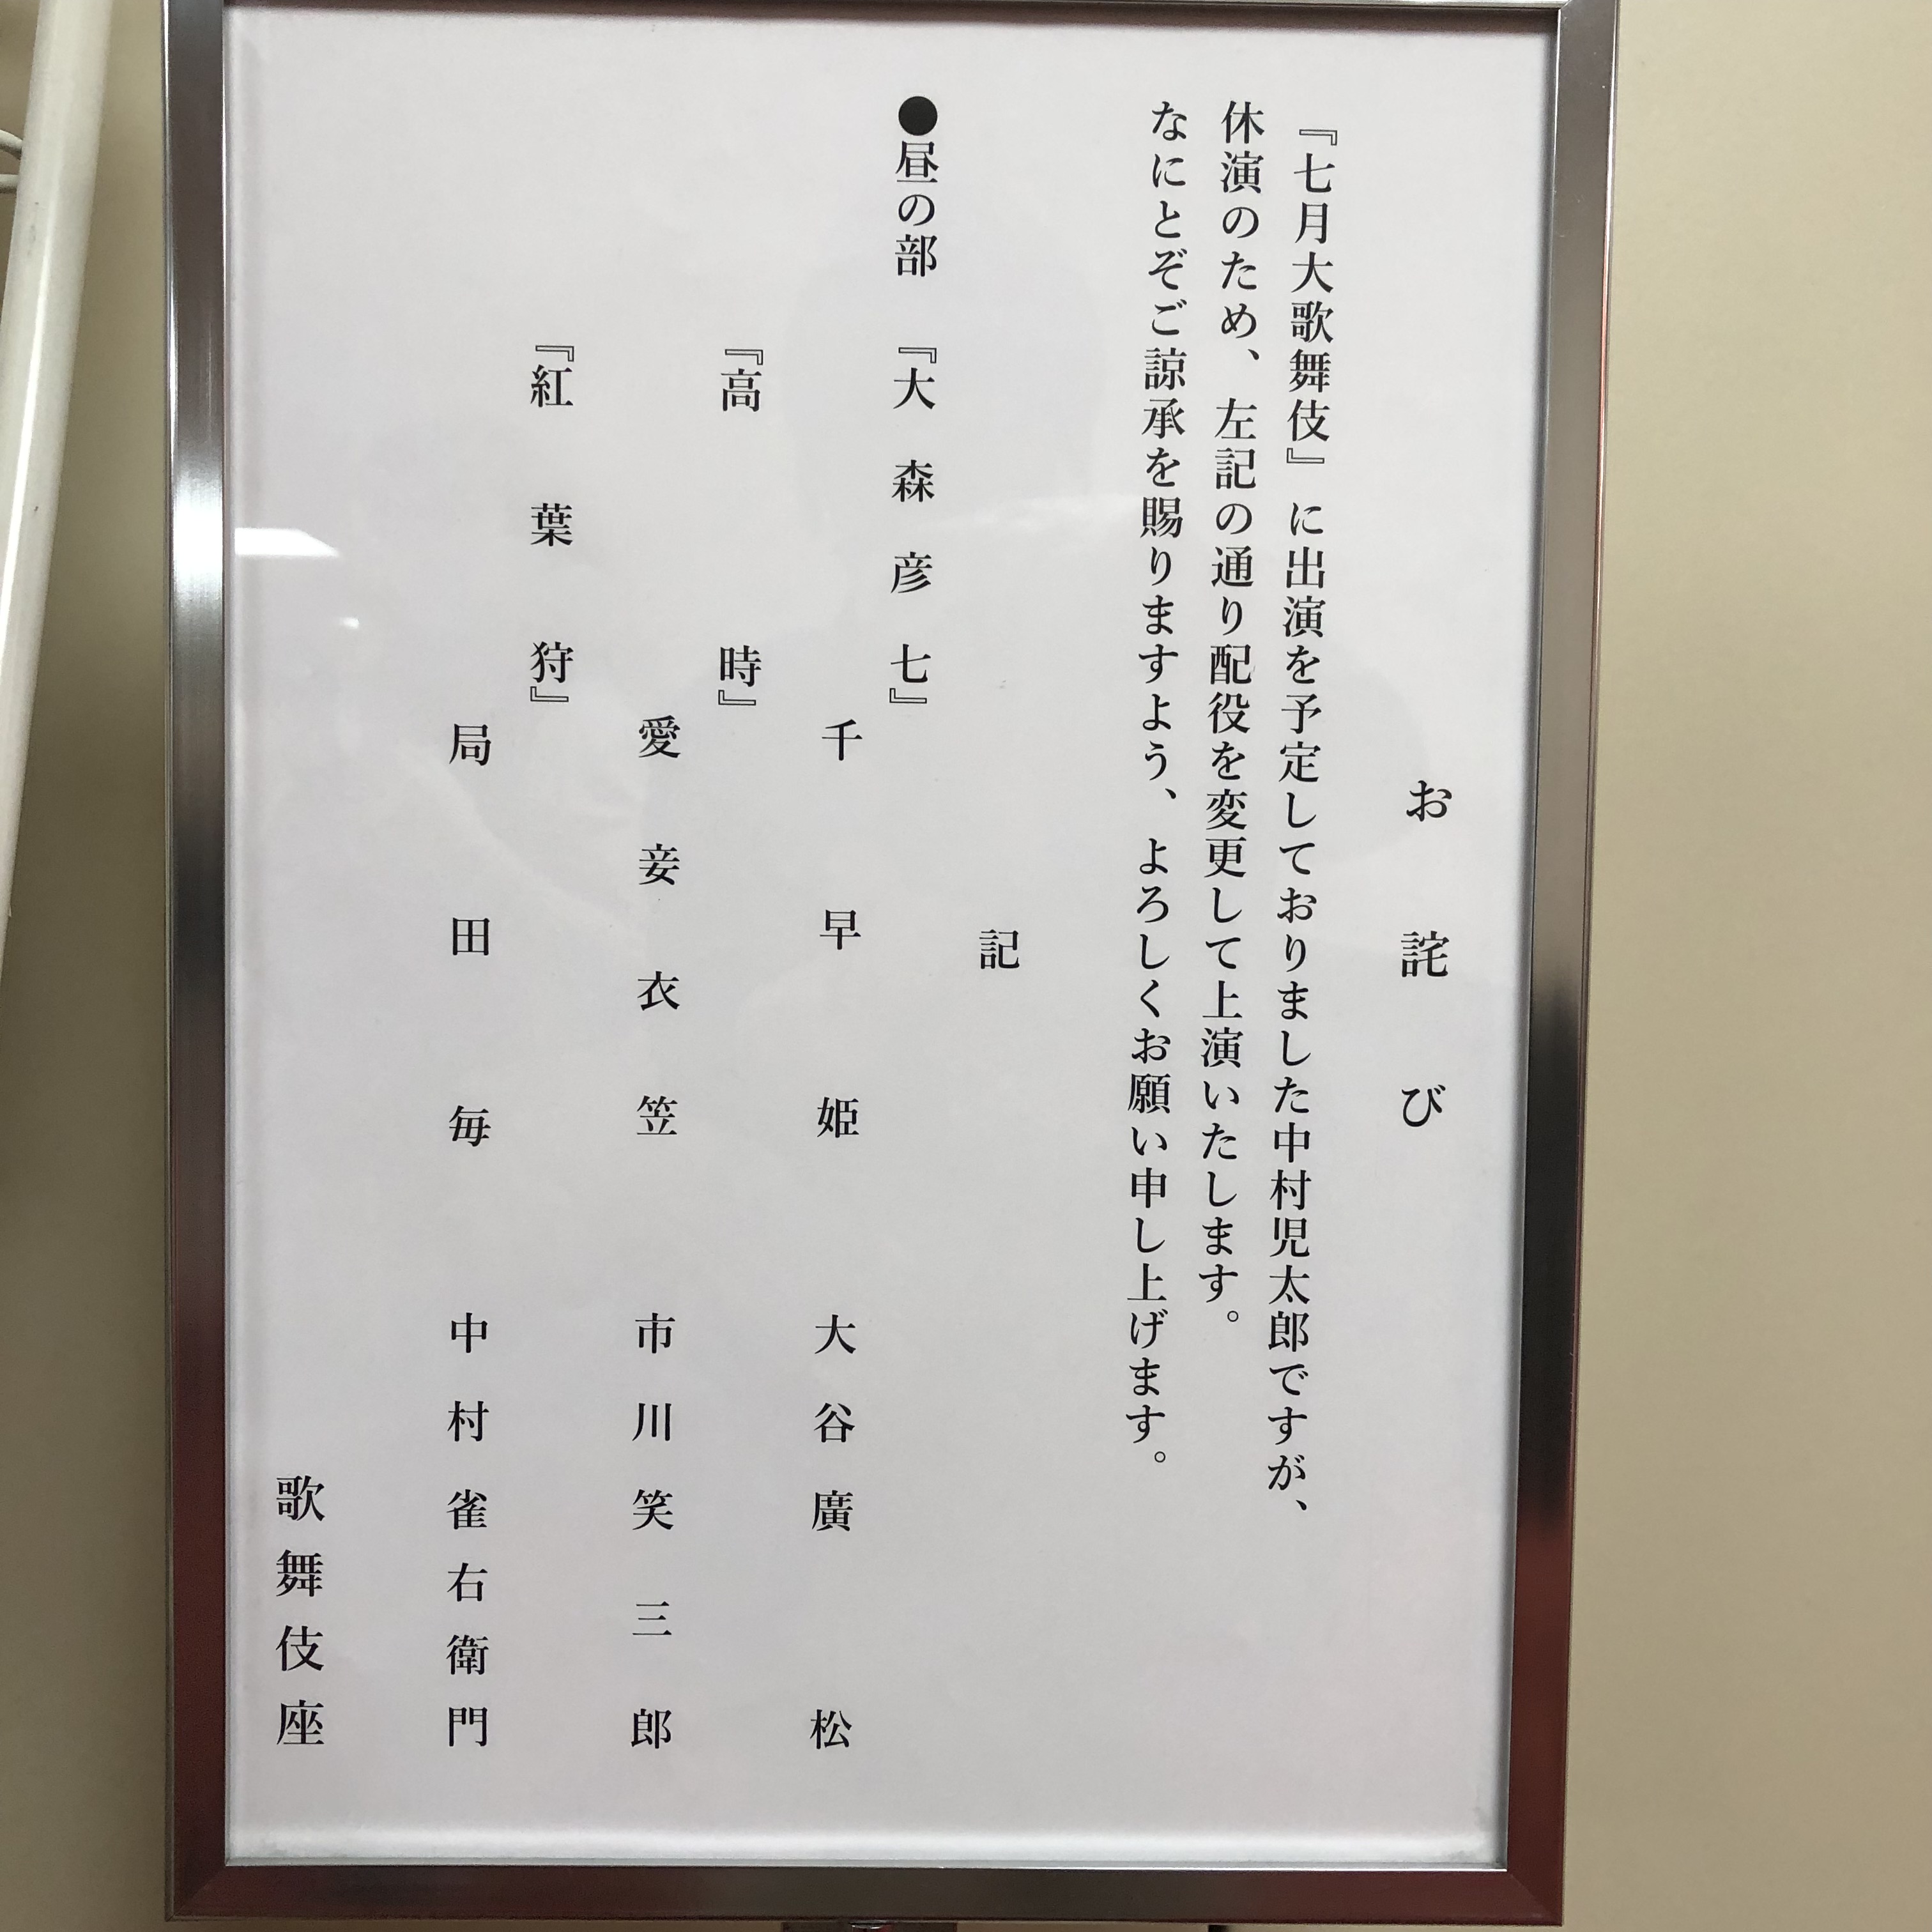 お詫び
『七月大歌舞伎』に出演を予定しておりました中村児太郎ですが、
休演のため、左記の通り配役を変更して上演いたします。
なにとぞご諒承を賜りますよう、よろしくお願い申し上げます。
記
●昼の部 『大森彦七』
千早姫 大谷廣松
『高時』
愛妾衣笠 市川笑三郎
『紅葉狩』
局田毎 中村雀右衛門
歌舞伎座